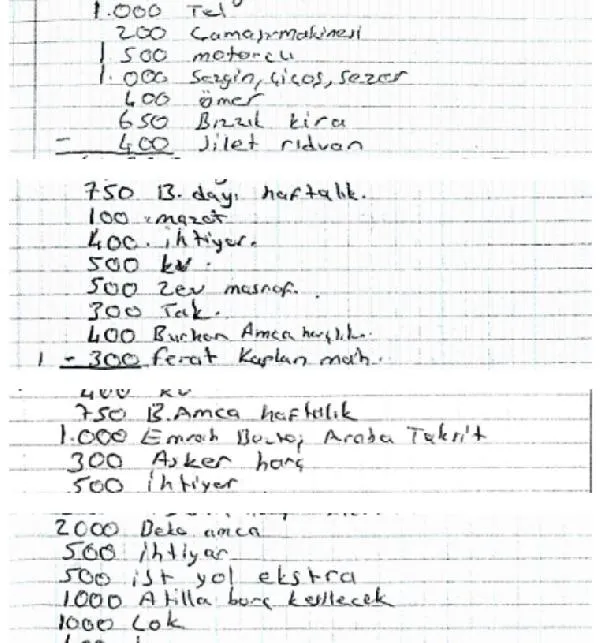 1.000 Tel
200 Çamaşırmakinesi
1 500 motorcu
1.000 Sezgin, Çiços, Sezer
400 ömer
650 kira
- 400 Jilet rıdvan
750 B. dayı haftalık.
100 mazot
400. ihtiyar.
500 kv.
500 Zev masraf.
300 Tak.
400 Burhan Amca harçlık.
1 - 300 ferat Kaplan mah.
400 kv
750 B.Amca haftalık
1.000 Emrah Araba Taksit
300 Asker harç
500 ihtiyar
2000 Beko amca
500 ihtiyar
500 ist yol ekstra
1.000 Atilla borç kesilecek
1000 Çok